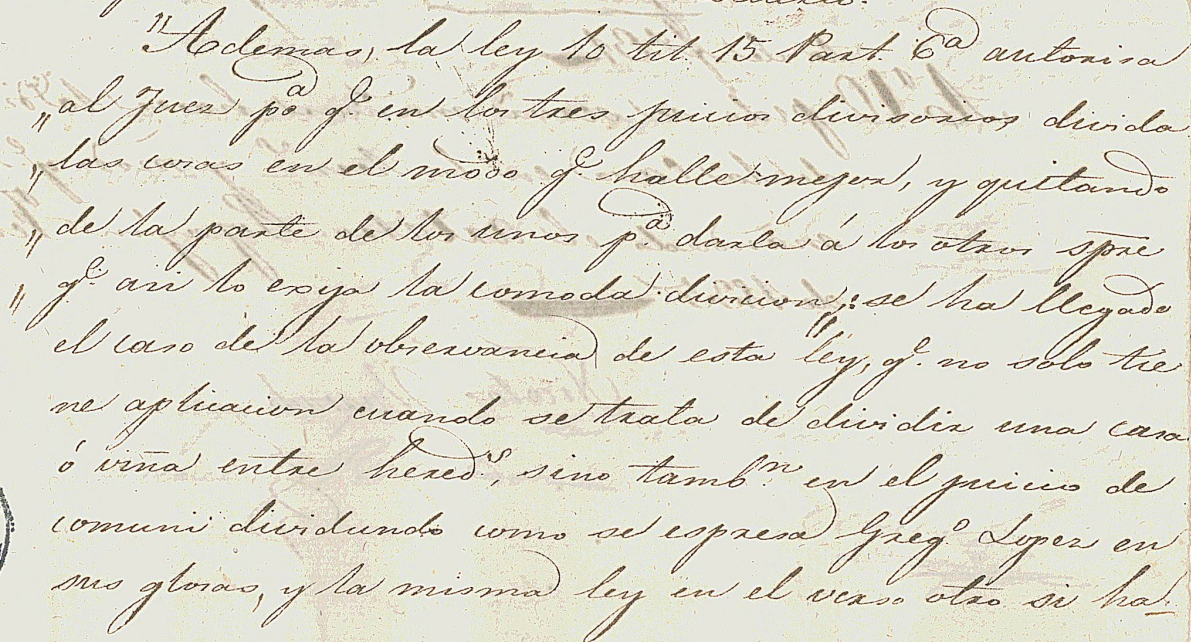 "Ademas, la ley 10 tit. 15 Part. 6ª autorisa
" al Juez pª q.e en los tres juicios divisorios divida
" las cosas en el modo q.e halle mejor, y quitando
" de la parte de los unos p.ª darla á los otros spre
" q.e asi lo exija la comoda division"; se ha llegado
el caso de la observancia de esta ley, q.e no solo tie
ne aplicacion cuando se trata de dividir una casa
ó viña entre hered.s, sino tamb.n en el juicio de
comuni dividundo como se espresa Greg.o Lopez en
sus glosas, y la misma ley en el verso otro si ha-